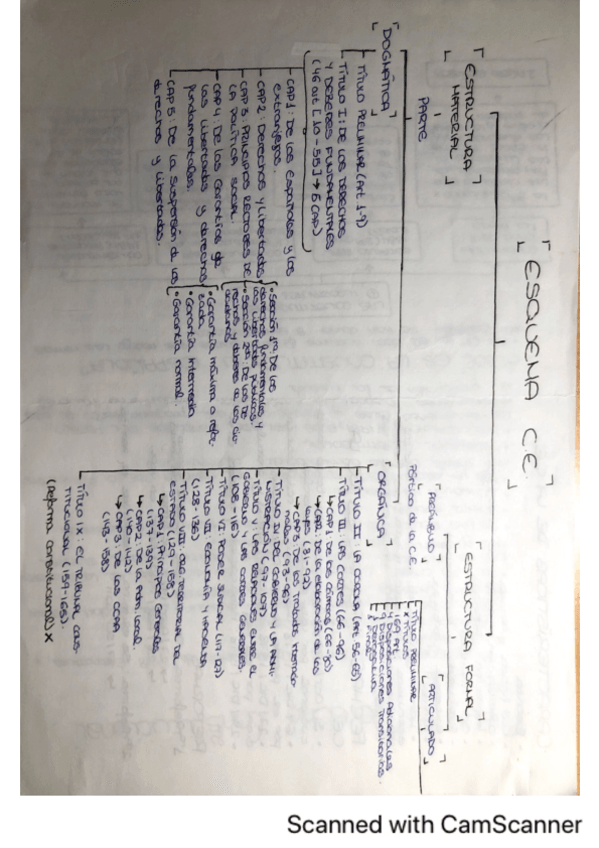 ESQUEMA C.E.
ESTRUCTURA
MATERIAL
PARTE
DOGMÁTICA
TÍTULO PRELIMINAR (Art 1-9)
TÍTULO I: DE LOS DERECHOS
Y DEBERES FUNDAMENTALES
(46 art [10-55] → 5 CAP)
CAP 1: De los españoles y los
extranjeros.
CAP 2: Derechos y libertades
• Sección 1ª: De los
derechos fundamentales y
las libertades públicas.
• Sección 2ª: De los de
rechos y deberes de los ciu-
dadanos
CAP 3: PRINCIPIOS RECTORES DE
LA POLÍTICA SOCIAL.
CAP 4: De las Garantías de
las libertades y derechos
fundamentales.
• Garantía máxima o refor-
zada
• Garantía intermedia
• Garantía normal.
CAP 5: De la suspensión de los
derechos y libertades.
ORGÁNICA
TÍTULO II: LA CORONA (Art 56-65)
TÍTULO III: LAS CORTES (66-96)
↳ CAP 1 De las cámaras (66-80)
↳ CAP 2: De la elaboración de las
leyes (81-92)
↳ CAP 3: De los Tratados internacio-
nales (93-96)
TÍTULO IV: DEL GOBIERNO Y LA ADMI-
NISTRACIÓN (97-107)
TÍTULO V: LAS RELACIONES ENTRE EL
GOBIERNO Y LAS CORTES GENERALES.
(108-116)
TÍTULO VI: PODER JUDICIAL (117-127)
TÍTULO VII: ECONOMÍA Y HACIENDA
(128-136)
TÍTULO VIII: ORG TERRITORIAL DEL
ESTADO (137-158)
↳ CAP 1: Principios Generales
(137-139)
↳ CAP 2: De la Adm. local.
(140-142)
↳ CAP 3: De las CCAA
(143-158)
TÍTULO IX: EL TRIBUNAL CONS-
TITUCIONAL (159-165).
(Reforma constitucional) X
ESTRUCTURA FORMAL
PREÁMBULO
Pórtico de la C.E.
ARTICULADO
TÍTULO PRELIMINAR
TÍTULOS
169 Art
4 Disposiciones Adicionales
9 Disposiciones Transitorias.
Scanned with CamScanner